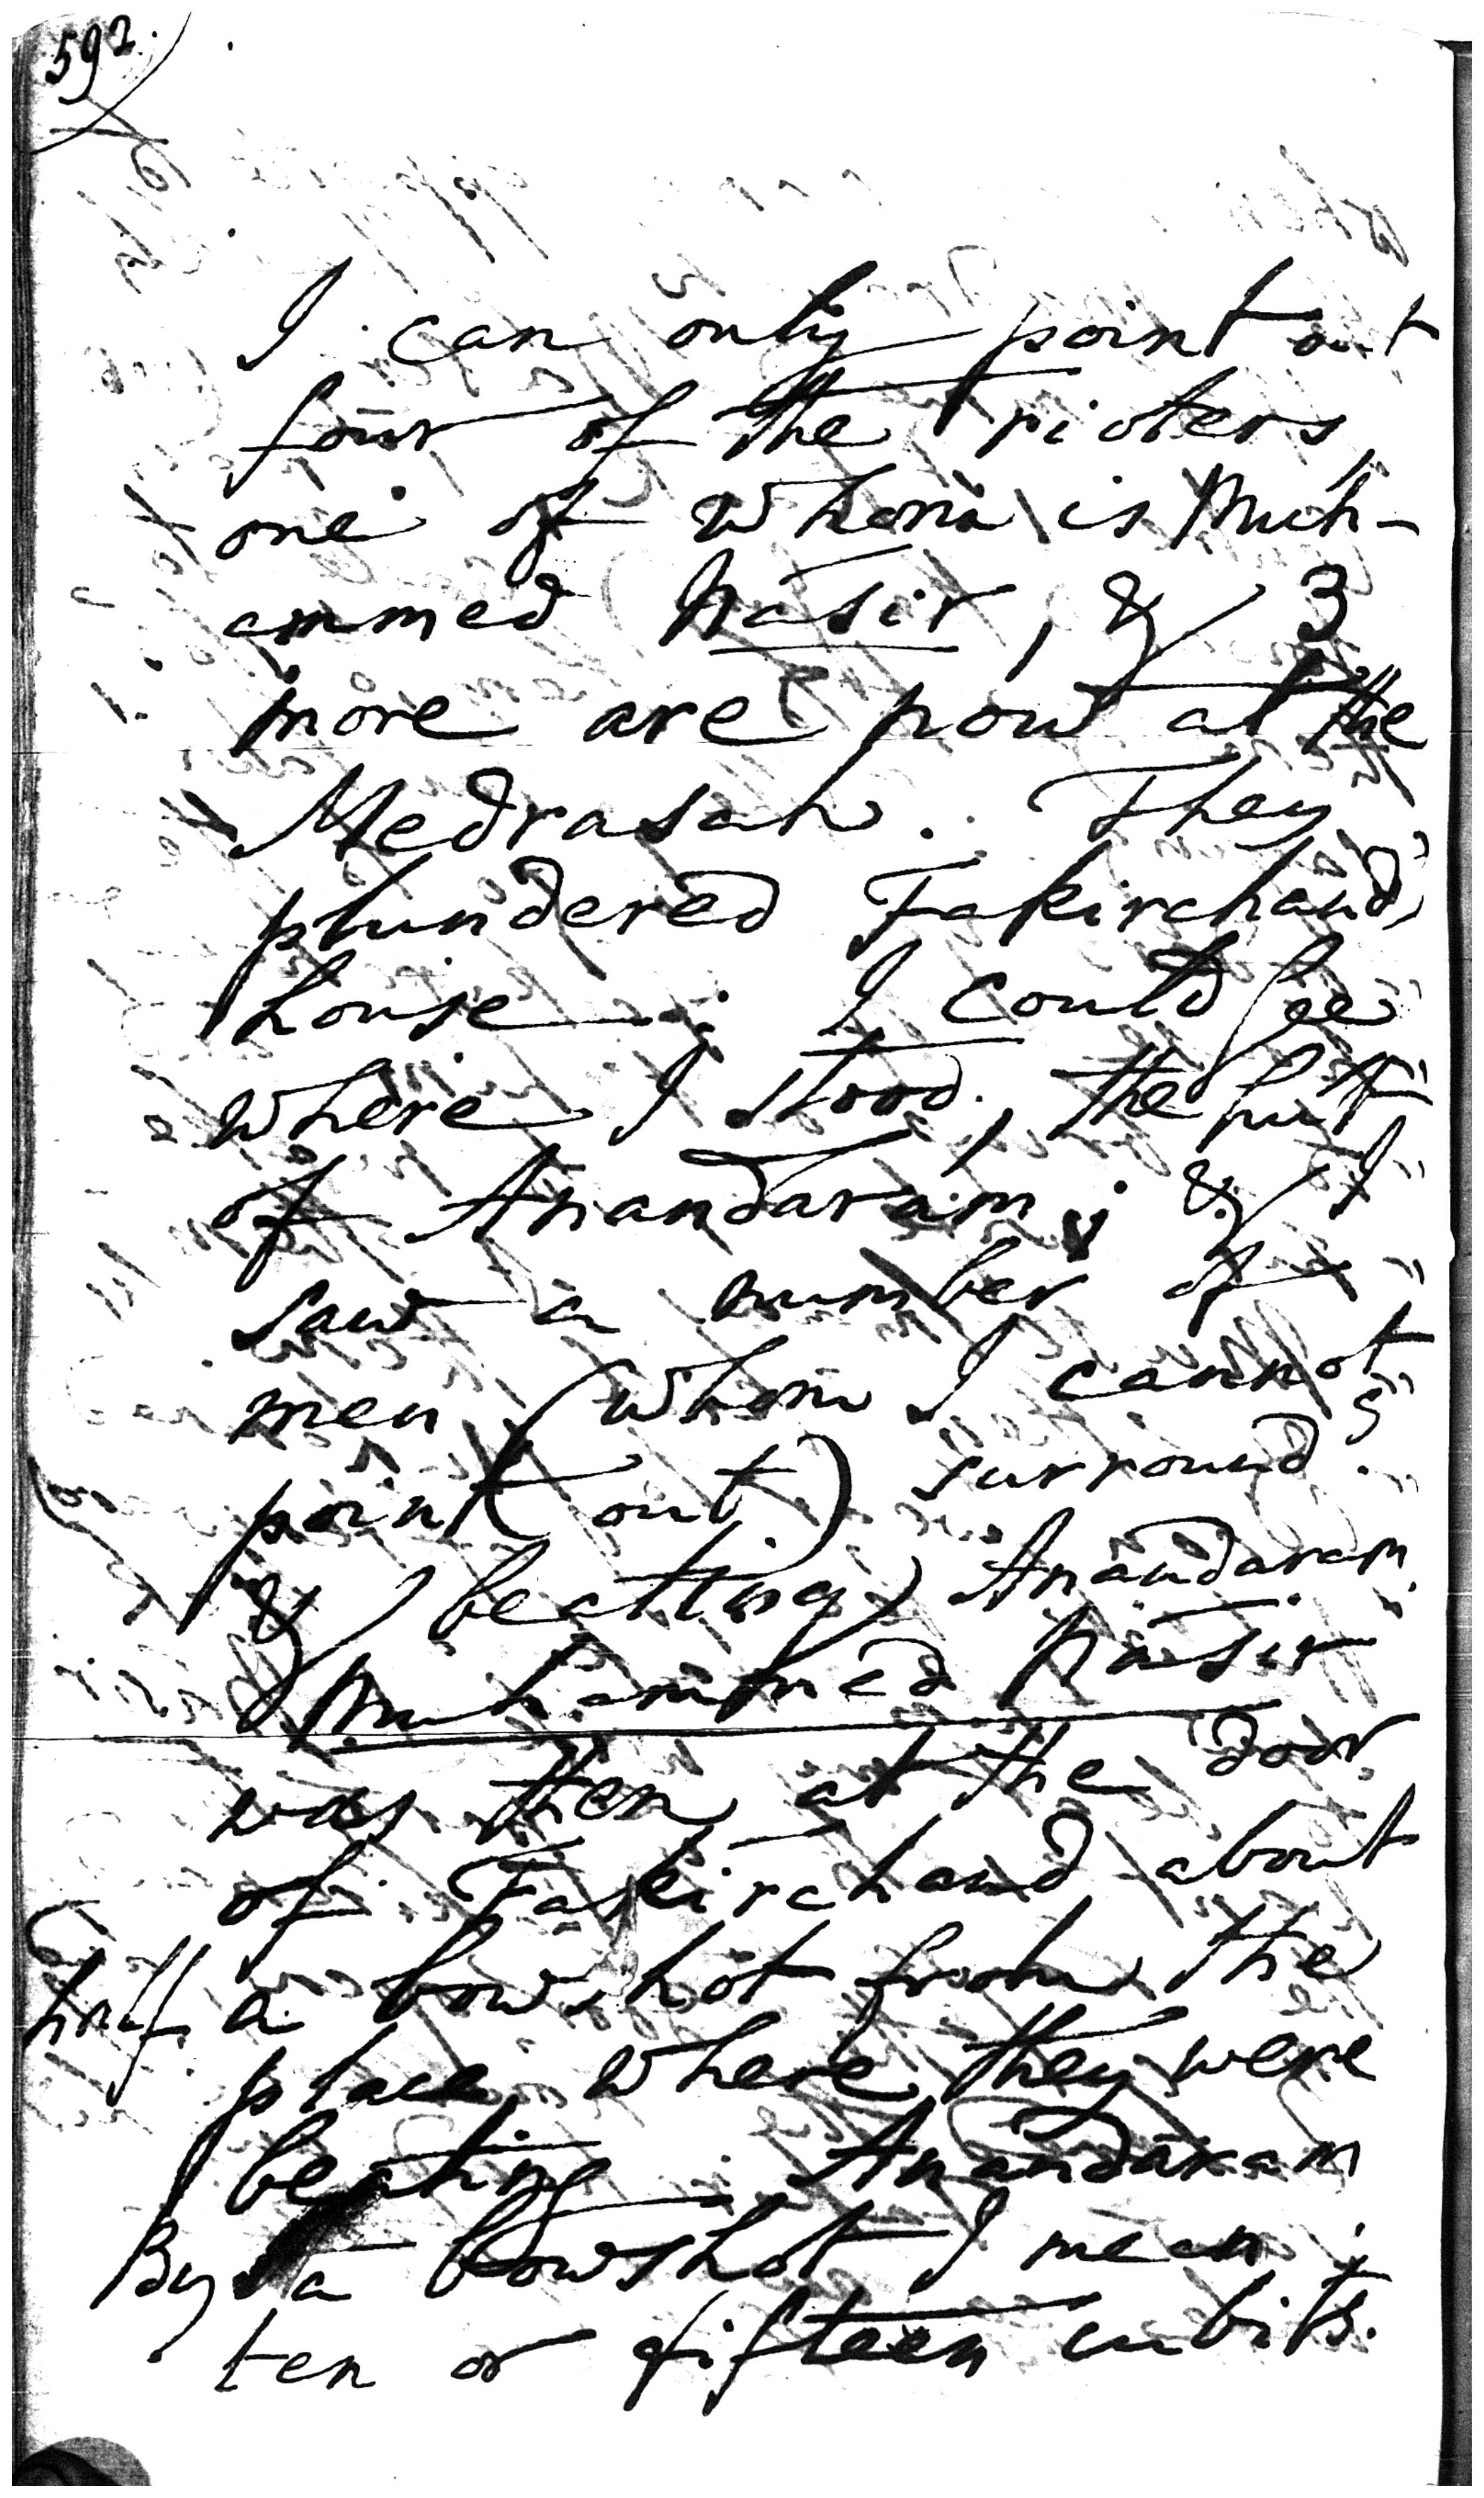 592.
I can only point out
four of the rioters,
one of whom is Muh-
ammed Nasir, & 3
more are now at the
Medrasah. They
plundered Fakirchand's
house; I could see
where I stood, the hut
of Anandaram; & I
saw a number of
men (whom I cannot
point out) surround.g
& beating Anandaram.
Muhammed Nasir
was then at the door
of Fakirchand about
half a bowshot from the
place where they were
beating Anandaram
By a bowshot I mean
ten or fifteen cubits.